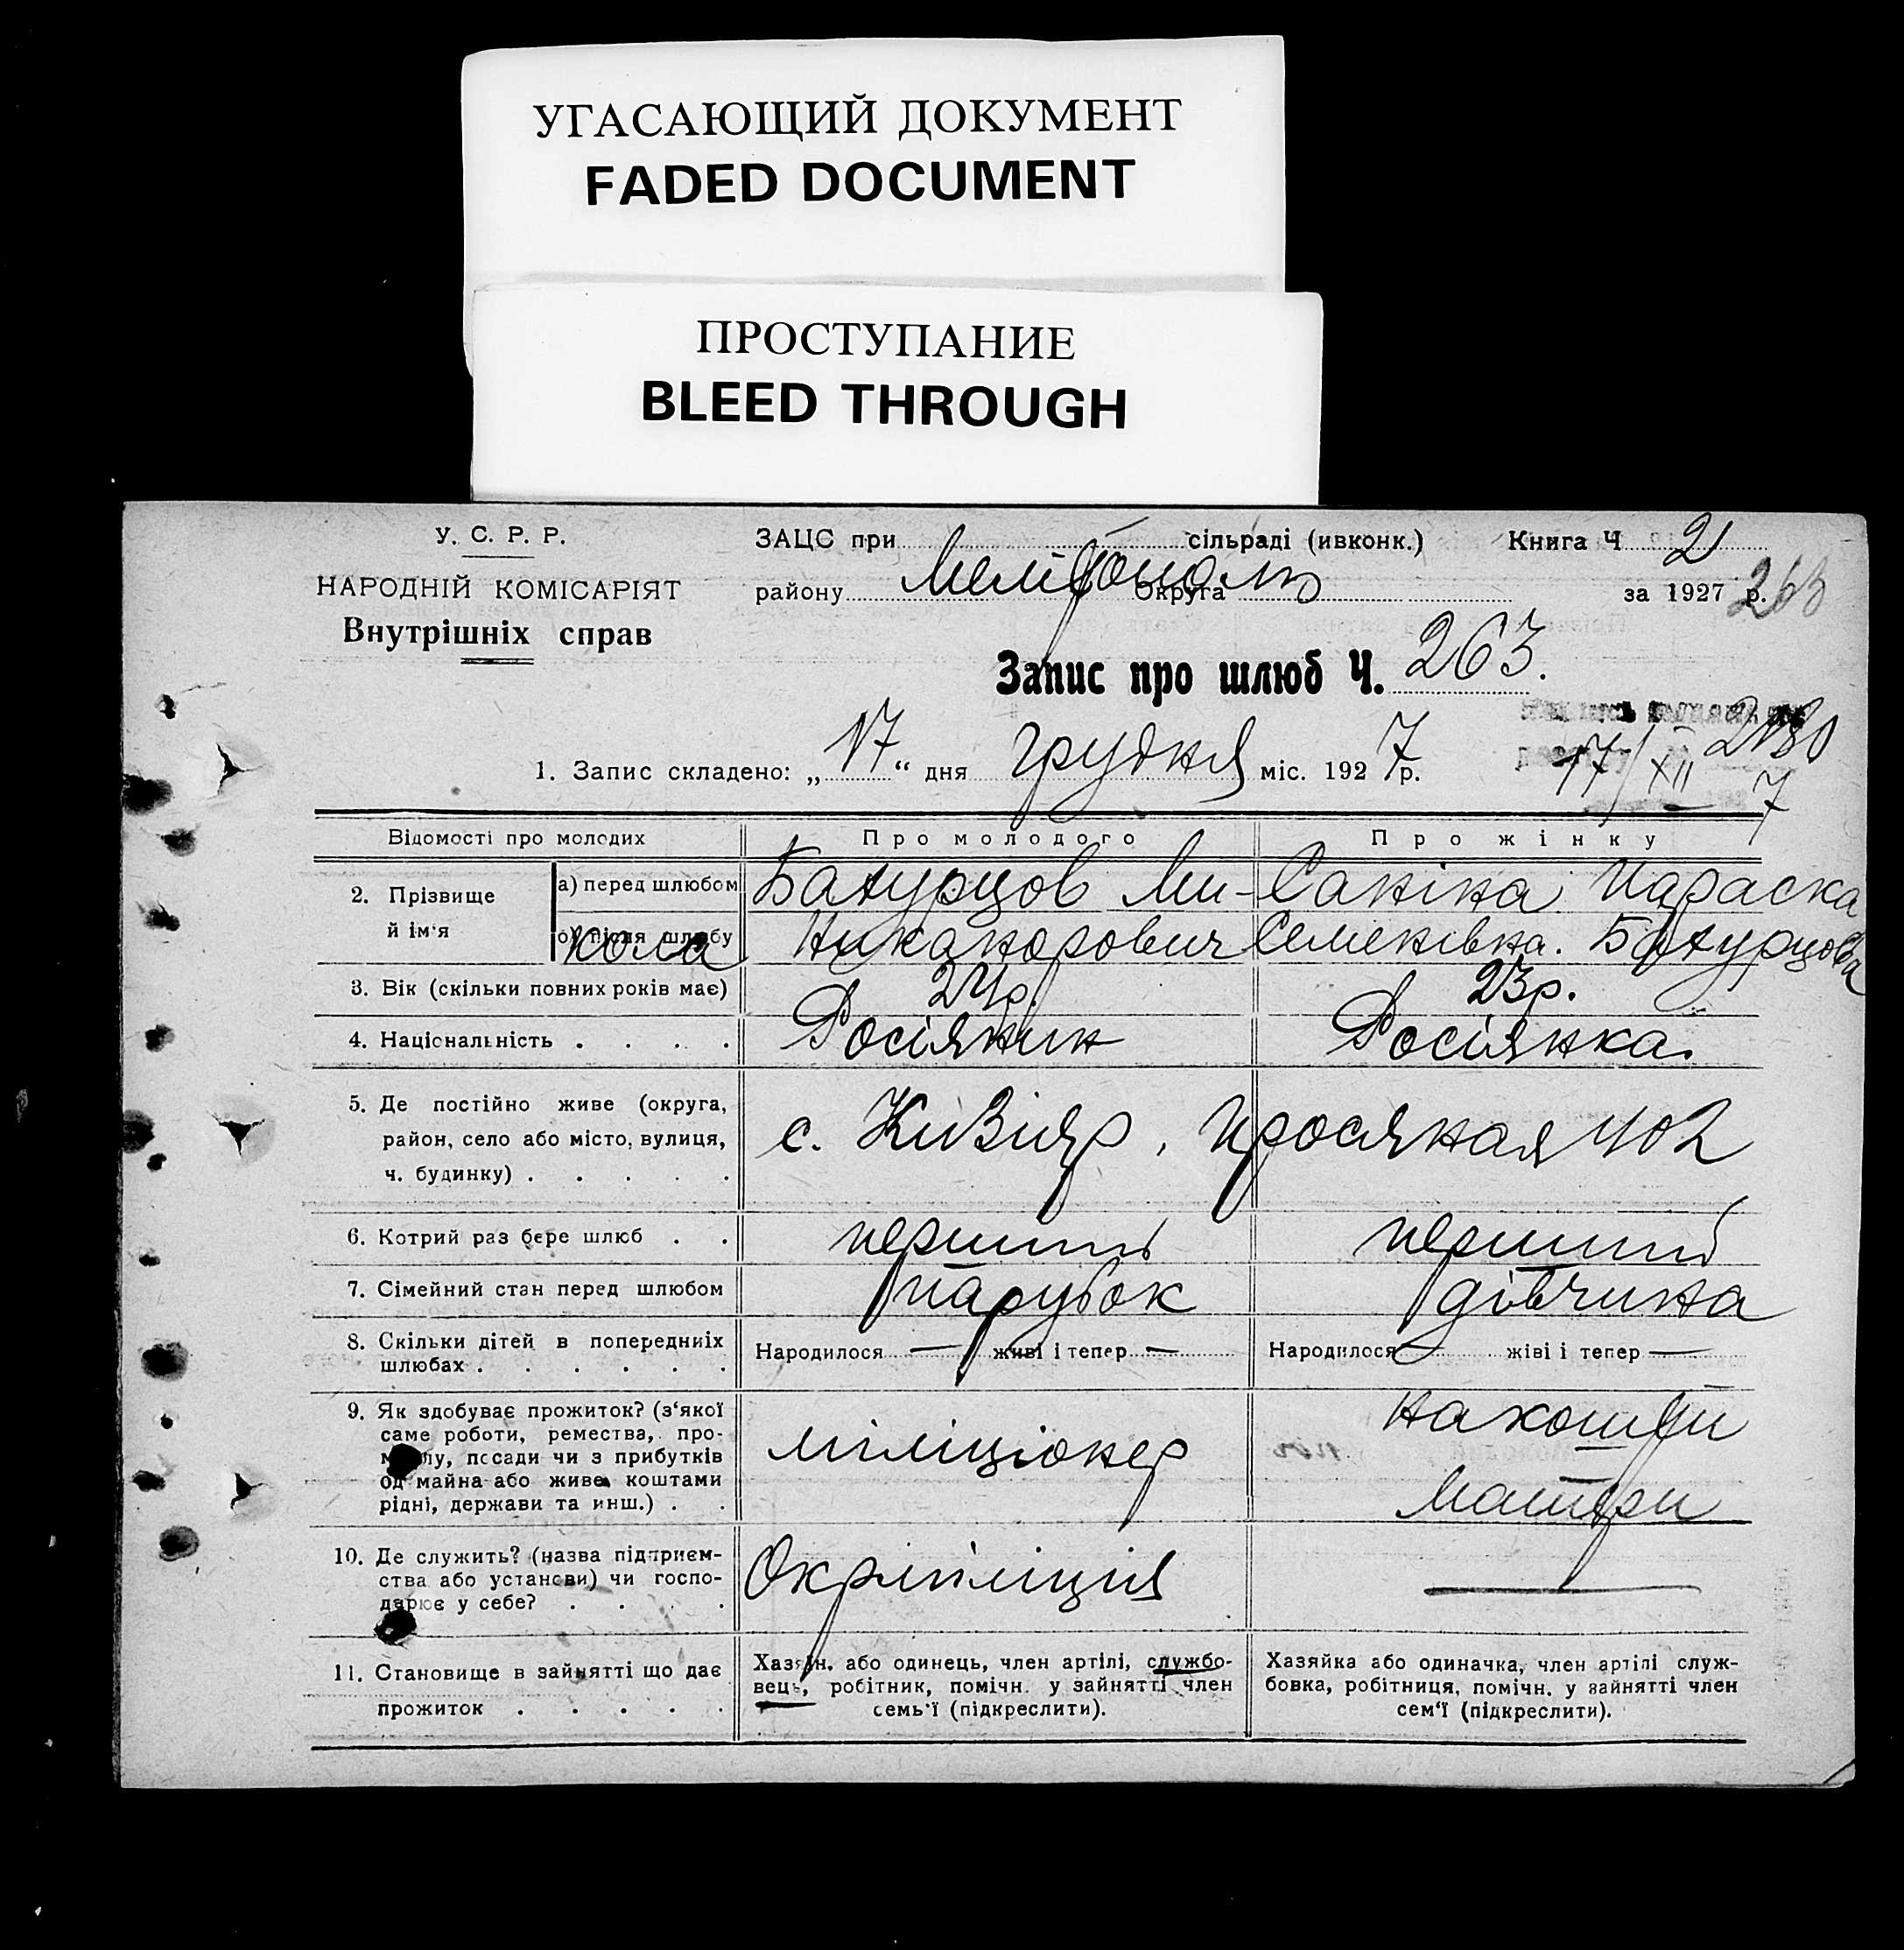 УГАСАЮЩИЙ ДОКУМЕНТ
FADED DOCUMENT
ПРОСТУПАНИЕ
BLEED THROUGH
У. С. Р. Р.
НАРОДНІЙ КОМІСАРІЯТ
Внутрішніх справ
ЗАЦС при сільраді (ивконк.)
району Мелітополь Округа
Книга Ч 2
за 1927 р.
263
Запис про шлюб Ч. 263.
1. Запис складено: „17“ дня грудня міс. 1927 р.
2130
17/XII 7
Відомості про молодих Про молодого Про жінку
2. Прізвище й ім'я
а) перед шлюбом Батурцов Ми- Саніна Параска
б) після шлюбу кола Никанорович Семенівна. Батурцова
3. Вік (скільки повних років має) 24р. 23р.
4. Національність . . . . Росіянин Росіянка.
5. Де постійно живе (округа,
район, село або місто, вулиця,
ч. будинку) . . . . .
с. Кизіяр, Просяная 402
6. Котрий раз бере шлюб . . перший перший
7. Сімейний стан перед шлюбом парубок дівчина
8. Скільки дітей в попередниіх
шлюбах . . . . . .
Народилося — живі і тепер — Народилося — жіві і тепер —
9. Як здобуває прожиток? (з'якої
саме роботи, ремества, про-
лу, посади чи з прибутків
од майна або живе коштами
рідні, держави та инш.) . .
міліціонер
на кошти
матери
10. Де служить? (назва підприєм-
ства або установи) чи госпо-
дарює у себе? . . . .
Окрміліція —
11. Становище в зайнятті що дає
прожиток . . . . .
Хазяїн. або одинець, член артілі, службо-
вець, робітник, помічн. у зайнятті член
семь'ї (підкреслити).
Хазяйка або одиначка, член артілі служ-
бовка, робітниця, помічн. у зайнятті член
сем'ї (підкреслити).